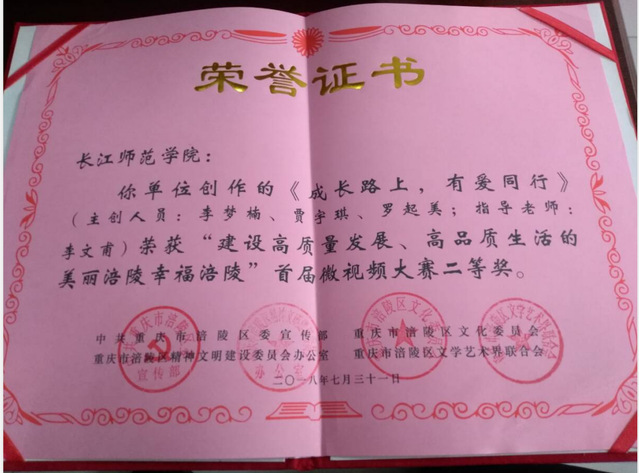 荣誉证书
长江师范学院：
你单位创作的《成长路上，有爱同行》
（主创人员：李梦楠、贾宇琪、罗起美；指导老师：
李文甫）荣获“建设高质量发展、高品质生活的
美丽涪陵幸福涪陵”首届微视频大赛二等奖。
中共重庆市涪陵区委宣传部 重庆市涪陵区文化委员会
重庆市涪陵区精神文明建设委员会办公室 重庆市涪陵区文学艺术界联合会
宣传部
办公室
二〇一八年七月三十一日